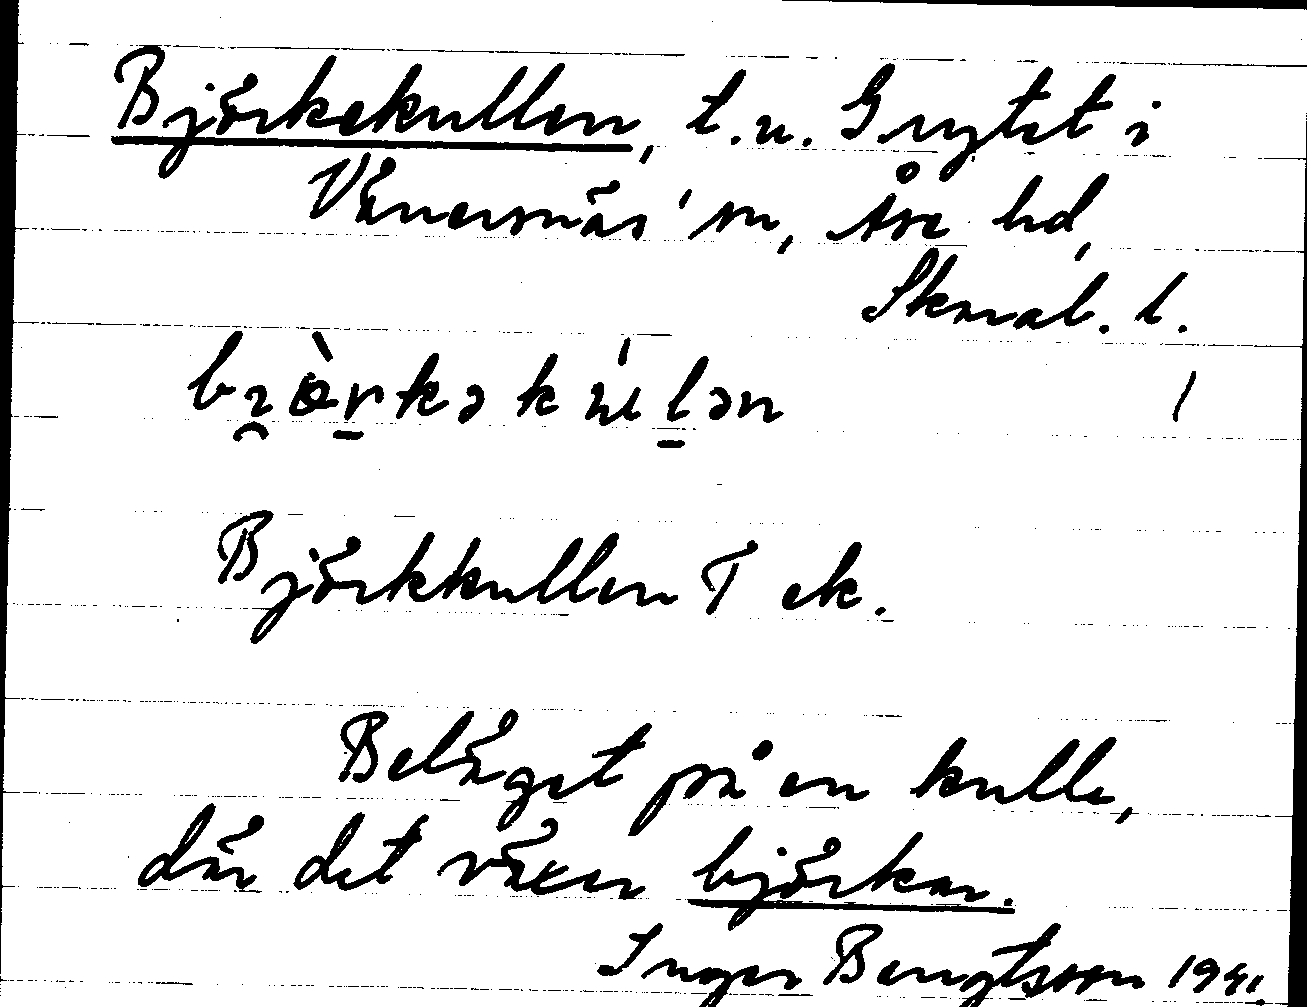 Björkekullen, t. u. Grytet i
Vänersnäs' sn, Åse hd,
Skarab. l.
bi̯ö̀r̠kəkúl̠ən /
Björkkullen T ek.
Beläget på en kulle,
där det växer björkar.
Inger Bengtsson 1941.